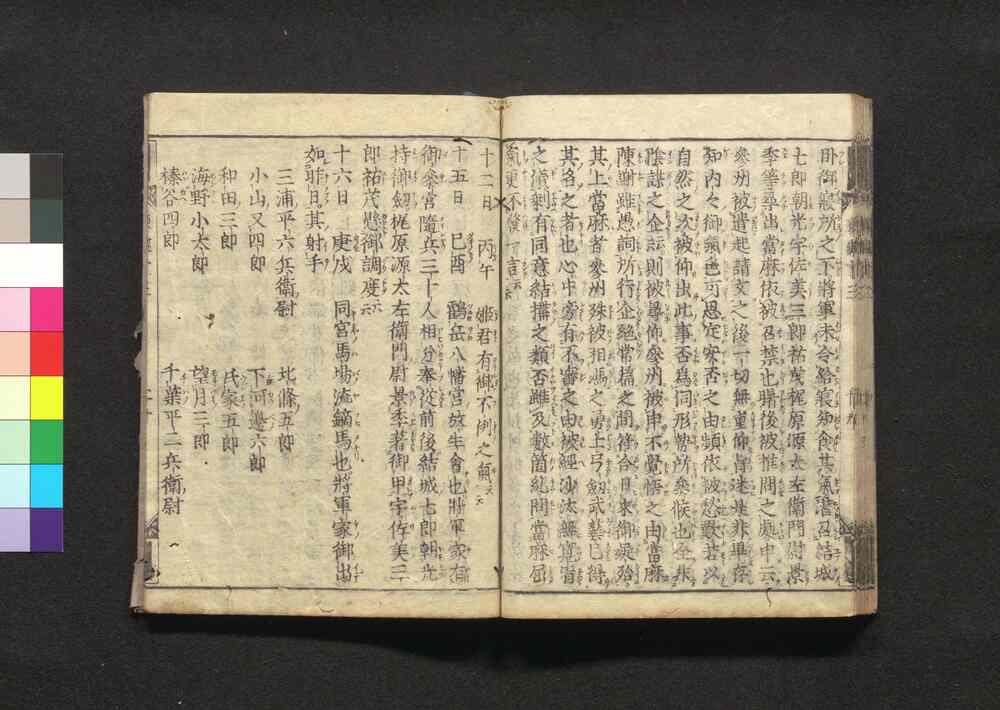 臥御寝所之下將軍未令給寝知食其氣潜召結城
七郎朝光宇佐美三郎祐茂梶原源太左衛門尉景
季等尋出當麻依被召禁也曙後被推問之處申云
參州被遣起請文之後一切無重仰肯迷是非畢存
知内々御氣色可思定安否之由頻依被愁歎若以
自然之次被仰出此事否爲伺形勢所參候也全非
陰謀之企云々則被尋仰參州被申不覺悟之由當麻
陳謝雖愚詞所行企絶常篇之間符合日來御疑殆
其上當麻者參州殊被相馮之勇士弓劔武藝已得
其名之者也心中旁有不審之由被經沙汰無寛宥
之儀剰有同意結搆之類否雖及數箇糺問當麻屈
氣更不發一言云々
十二日　丙午　姫君有御不例之氣云々
十五日　己酉　鶴岳八幡宮放生會也將軍家有
御參宮隨兵三十人相分奉從前後結城七郎朝光
持御劔梶原源太左衛門尉景季著御甲宇佐美三
郎祐茂懸御調度云々
十六日　庚戌　同宮馬場流鏑馬也將軍家御出
如昨日其射手
三浦平六兵衛尉　北條五郎
小山又四郎　下河邊六郎
和田三郎　氏家五郎
海野小太郎　望月三郎
榛谷四郎　千葉平二兵衛尉